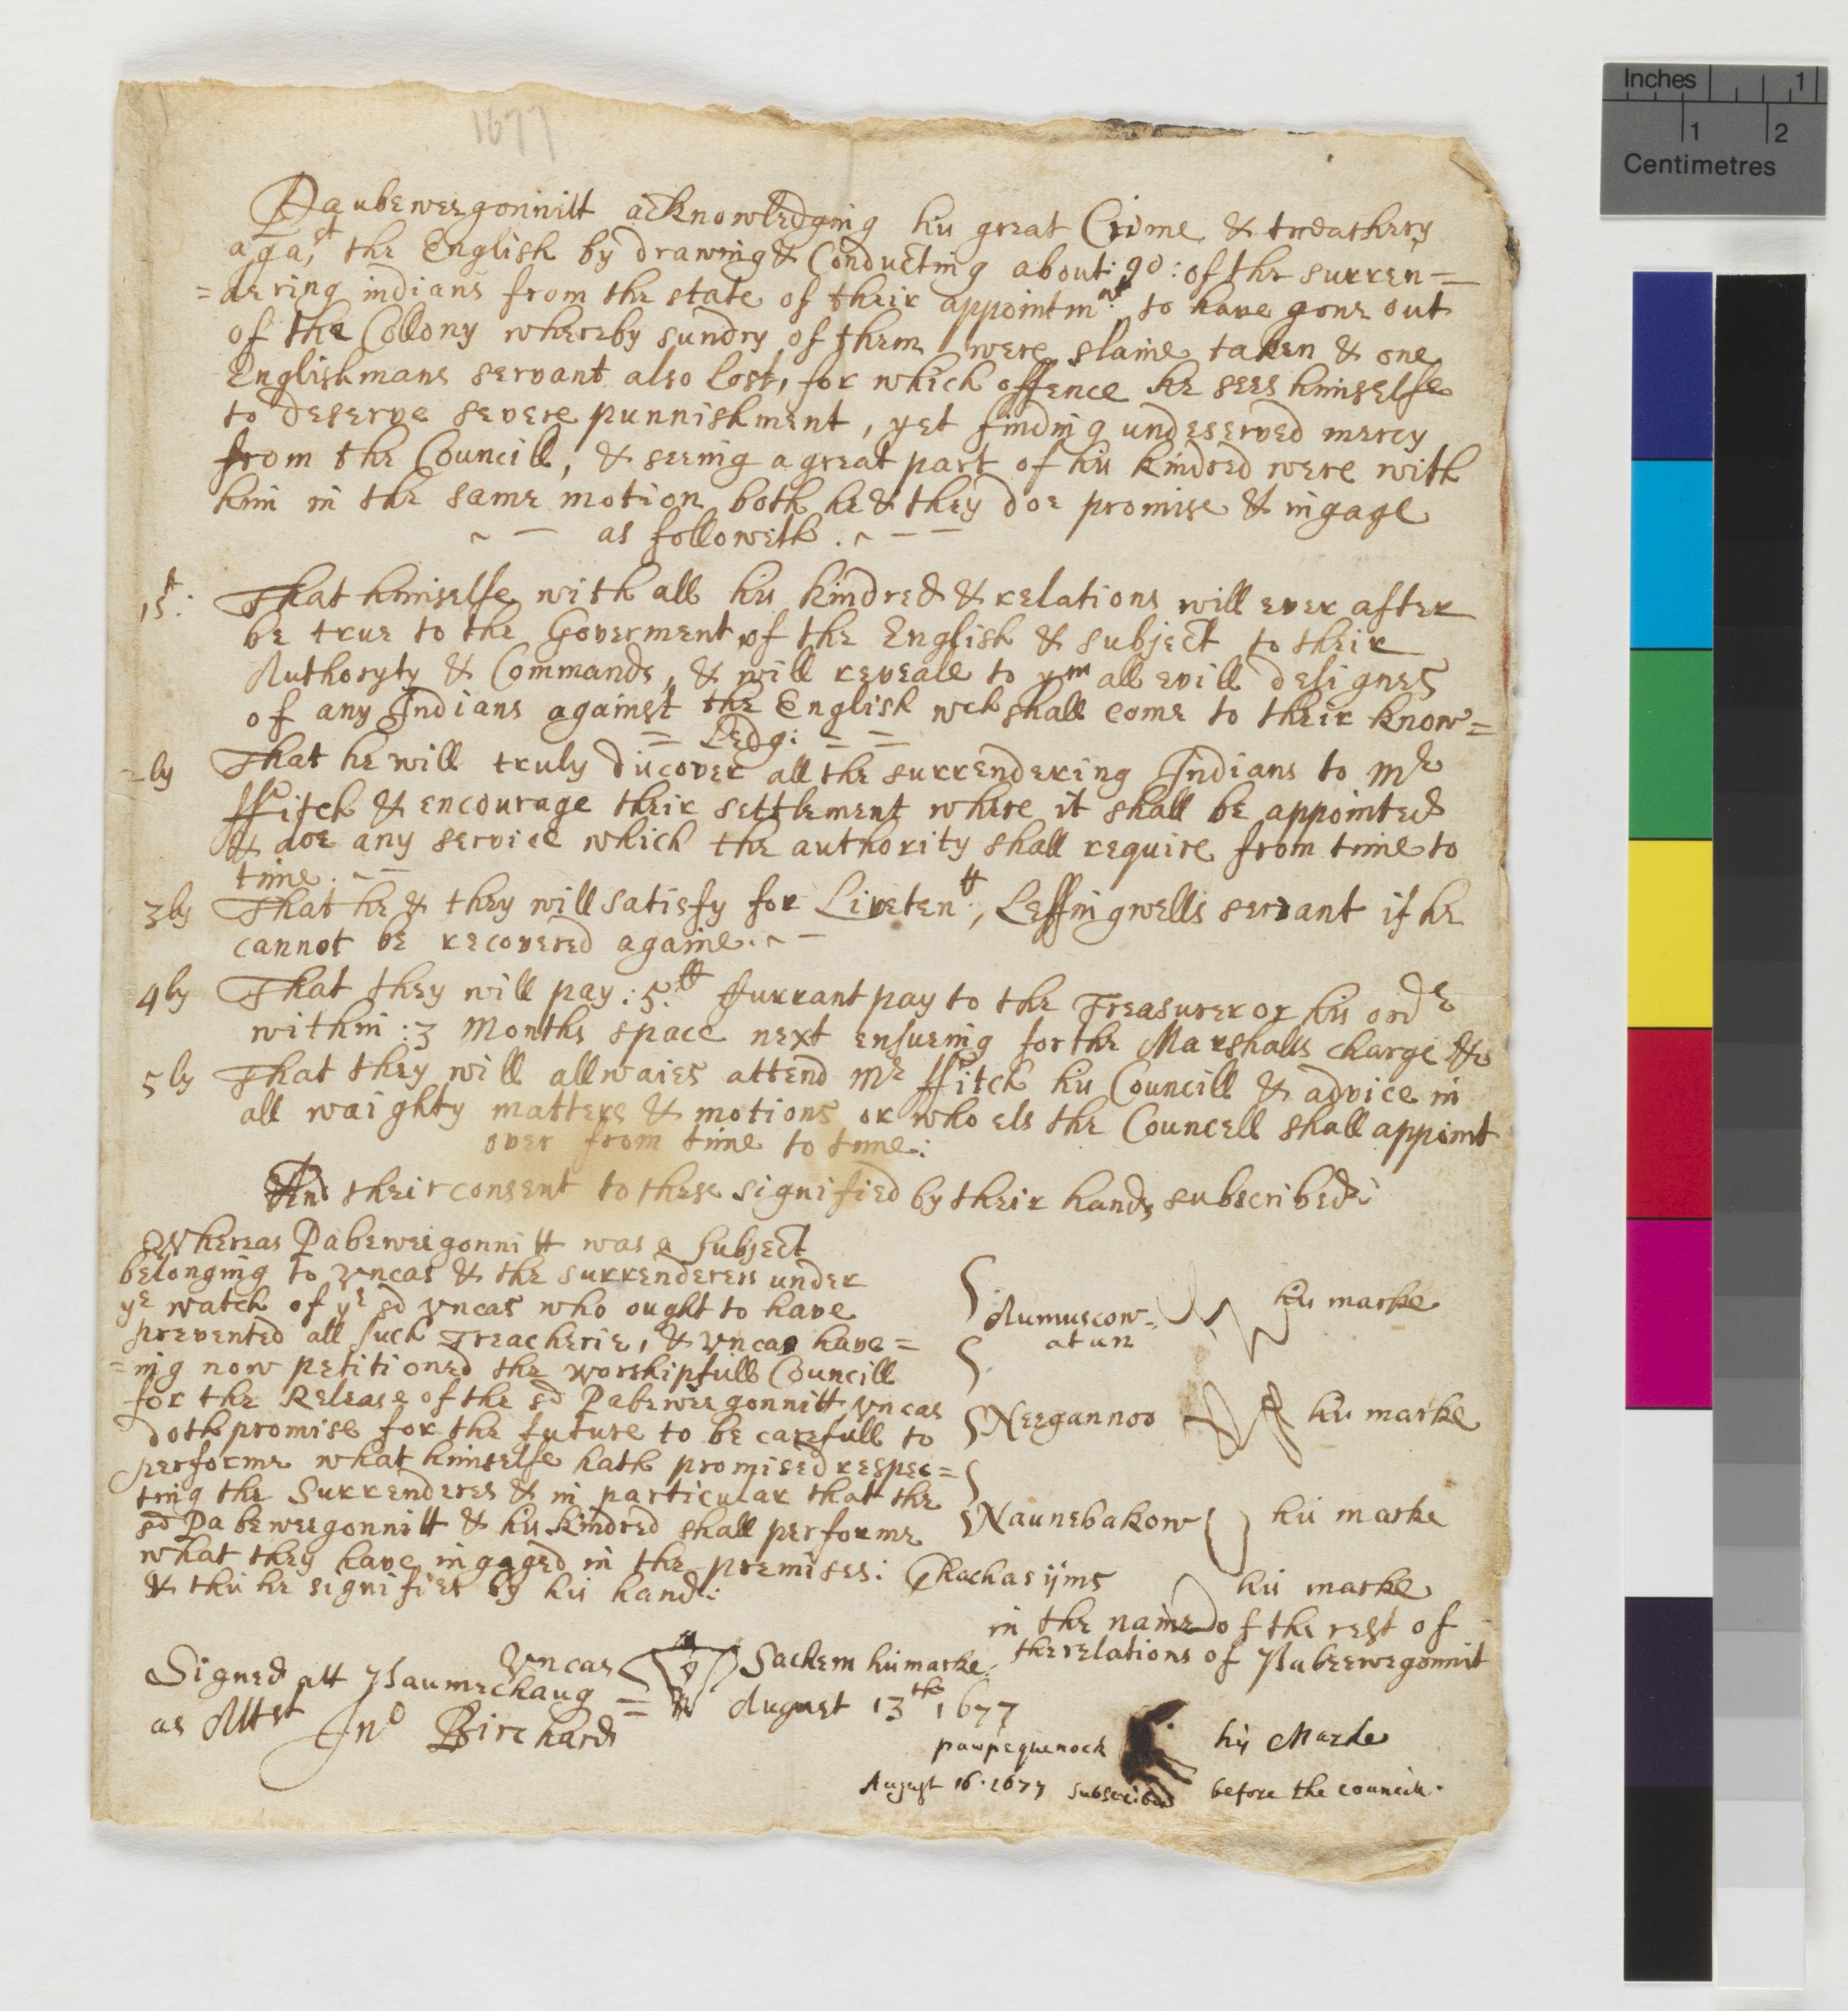 1677
Paubeweegonnitt acknowledging his great Crime & treathery
agast the English by drawing & Conducting about: 90: of the surren=
=dering indians from the state of their appointmnt to have gone out
of the Collony whereby sundry of them were slaine taken & one
Englishmans servant also lost, for which offence he sees himselfe
to deserve severe punnishment, yet finding undeserved mercy
from the Councill, & seeing a great part of his kindred were with
him in the same motion both he & they doe promise & ingage
~ — as followeth. ~ — —
1st: That himselfe with all his kindred & relations will ever after
be true to the Goverment of the English & subject to their
Authoryty & Commands, & will reveale to ym all evill designes
of any Indians against the English wch shall come to their know=
= ledg: = =
=ly That he will truly discover all the surrendering Indians to Mr
ffitch & encourage their settlement where it shall be appointed
& doe any service which the authority shall require from time to
time. ~ —
3ly That he & they will satisfy for Livetentt, Leffingwells servant if he
cannot be recovered againe. ~ —
4ly That they will pay: 5tt Currant pay to the Treasurer or his ordr
within: 3 Months space next ensueing for the Marshalls charge &c
5ly That they will allwaies attend Mr ffitch his Councill & advice in
all waighty matters & motions or who els the Councell shall appoint
over from time to time:
And their consent to these signified by their hands subscribed:
Whereas Pabeweegonnitt was a subject
belonging to Vncas & the surrenderers under
ye watch of ye sd Vncas who ought to have
prevented all such Treacherie, & Vncas have=
=ing now petitioned the worshipfull Councill
for the Release of the sd Pabeweegonnitt Vncas
doth promise for the future to be carefull to
performe what himselfe hath promised respec=
ting the Surrenderes & in particular that the
sd Pabeweegonnitt & his kindred shall performe
what they have ingaged in the premises:
& this he signifies by his hand:
Aumuscow= his marke
atun
Neegannoo his marke
Naunebakow his marke
Chachasijms his marke
in the name of the rest of
the relations of Pabeewegonnit
Vncas Sachem his marke
Signed att Naumechaug = August 13th 1677
as Attst Jno Birchard
pawpequenock his Marke
August 16. 1677 subscribed before the councill.
Inches 1
1 2
Centimetres